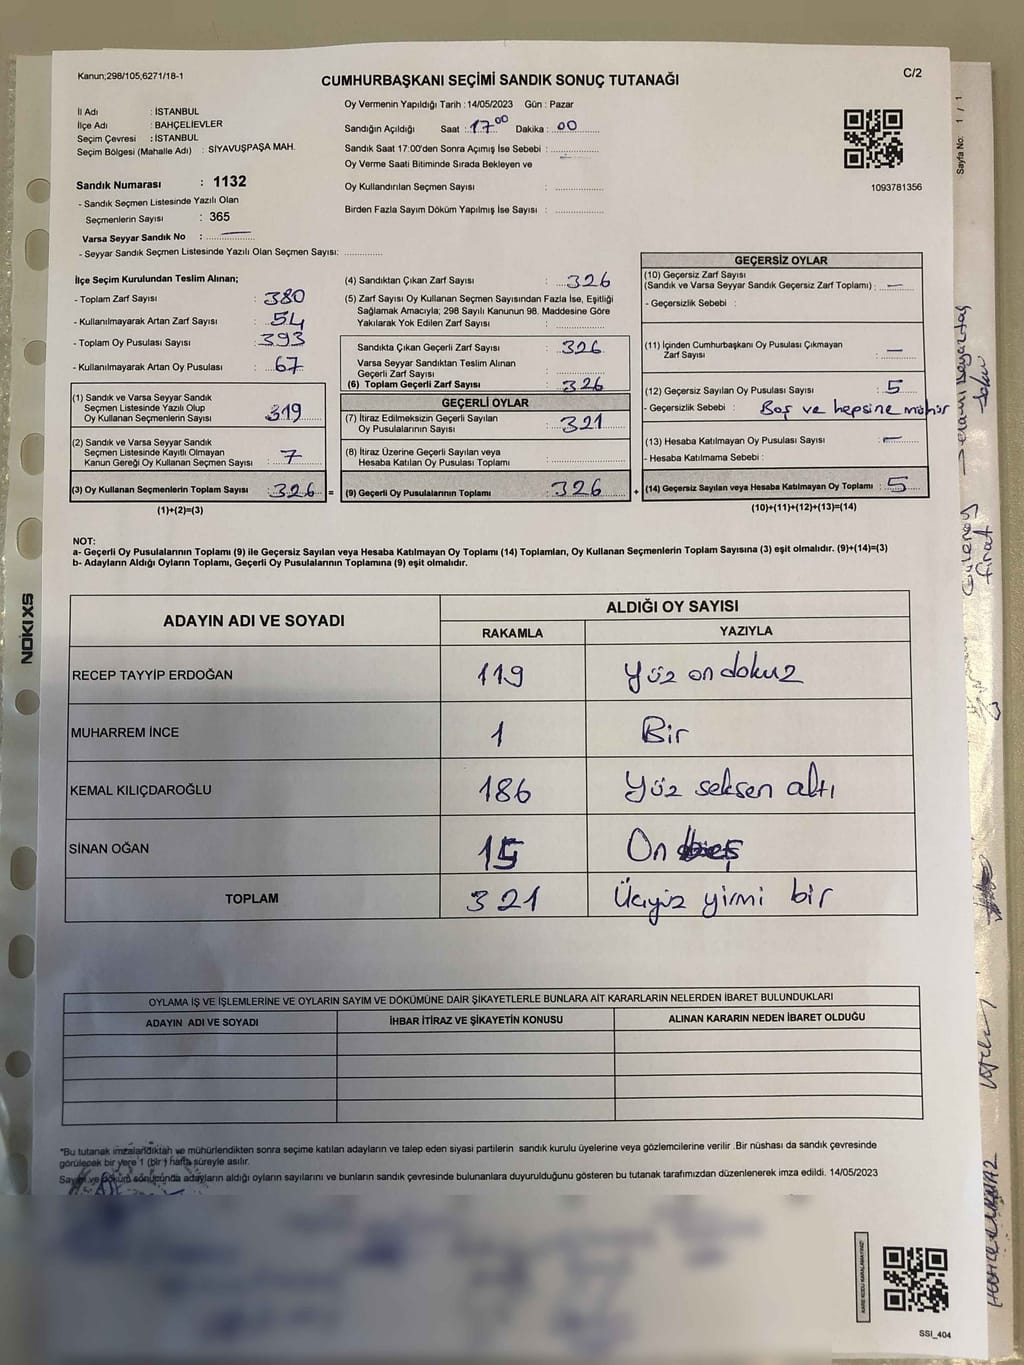 Kanun;298/105;6271/18-1
CUMHURBAŞKANI SEÇİMİ SANDIK SONUÇ TUTANAĞI
C/2
İl Adı : İSTANBUL
İlçe Adı : BAHÇELİEVLER
Seçim Çevresi : İSTANBUL
Seçim Bölgesi (Mahalle Adı) : SİYAVUŞPAŞA MAH.
Sandık Numarası : 1132
- Sandık Seçmen Listesinde Yazılı Olan
Seçmenlerin Sayısı : 365
Varsa Seyyar Sandık No :
- Seyyar Sandık Seçmen Listesinde Yazılı Olan Seçmen Sayısı:
Oy Vermenin Yapıldığı Tarih : 14/05/2023 Gün : Pazar
Sandığın Açıldığı Saat : 17 00 Dakika : 00
Sandık Saat 17:00'den Sonra Açımış İse Sebebi :
Oy Verme Saati Bitiminde Sırada Bekleyen ve
Oy Kullandırılan Seçmen Sayısı :
Birden Fazla Sayım Döküm Yapılmış İse Sayısı :
1093781356
Sayfa No: 1 / 1
İlçe Seçim Kurulundan Teslim Alınan;
- Toplam Zarf Sayısı : 380
- Kullanılmayarak Artan Zarf Sayısı : 54
- Toplam Oy Pusulası Sayısı : 393
- Kullanılmayarak Artan Oy Pusulası : 67
(1) Sandık ve Varsa Seyyar Sandık
Seçmen Listesinde Yazılı Olup
Oy Kullanan Seçmenlerin Sayısı : 319
(2) Sandık ve Varsa Seyyar Sandık
Seçmen Listesinde Kayıtlı Olmayan
Kanun Gereği Oy Kullanan Seçmen Sayısı : 7
(3) Oy Kullanan Seçmenlerin Toplam Sayısı : 326 =
(1)+(2)=(3)
(4) Sandıktan Çıkan Zarf Sayısı : 326
(5) Zarf Sayısı Oy Kullanan Seçmen Sayısından Fazla İse, Eşitliği
Sağlamak Amacıyla; 298 Sayılı Kanunun 98. Maddesine Göre
Yakılarak Yok Edilen Zarf Sayısı :
Sandıkta Çıkan Geçerli Zarf Sayısı : 326
Varsa Seyyar Sandıktan Teslim Alınan
Geçerli Zarf Sayısı :
(6) Toplam Geçerli Zarf Sayısı : 326
GEÇERLİ OYLAR
(7) İtiraz Edilmeksizin Geçerli Sayılan
Oy Pusulalarının Sayısı : 321
(8) İtiraz Üzerine Geçerli Sayılan veya
Hesaba Katılan Oy Pusulası Toplamı :
(9) Geçerli Oy Pusulalarının Toplamı : 326 +
GEÇERSİZ OYLAR
(10) Geçersiz Zarf Sayısı
(Sandık ve Varsa Seyyar Sandık Geçersiz Zarf Toplamı) : —
- Geçersizlik Sebebi :
(11) İçinden Cumhurbaşkanı Oy Pusulası Çıkmayan
Zarf Sayısı : —
(12) Geçersiz Sayılan Oy Pusulası Sayısı : 5
- Geçersizlik Sebebi : Boş ve hepsine mühür
(13) Hesaba Katılmayan Oy Pusulası Sayısı : —
- Hesaba Katılmama Sebebi :
(14) Geçersiz Sayılan veya Hesaba Katılmayan Oy Toplamı : 5
(10)+(11)+(12)+(13)=(14)
NOT:
a- Geçerli Oy Pusulalarının Toplamı (9) ile Geçersiz Sayılan veya Hesaba Katılmayan Oy Toplamı (14) Toplamları, Oy Kullanan Seçmenlerin Toplam Sayısına (3) eşit olmalıdır. (9)+(14)=(3)
b- Adayların Aldığı Oyların Toplamı, Geçerli Oy Pusulalarının Toplamına (9) eşit olmalıdır.
ADAYIN ADI VE SOYADI
ALDIĞI OY SAYISI
RAKAMLA YAZIYLA
RECEP TAYYİP ERDOĞAN 119 Yüz on dokuz
MUHARREM İNCE 1 Bir
KEMAL KILIÇDAROĞLU 186 Yüz seksen altı
SİNAN OĞAN 15 On beş
TOPLAM 321 Üçyüz yirmi bir
OYLAMA İŞ VE İŞLEMLERİNE VE OYLARIN SAYIM VE DÖKÜMÜNE DAİR ŞİKAYETLERLE BUNLARA AİT KARARLARIN NELERDEN İBARET BULUNDUKLARI
ADAYIN ADI VE SOYADI İHBAR İTİRAZ VE ŞİKAYETİN KONUSU ALINAN KARARIN NEDEN İBARET OLDUĞU
*Bu tutanak imzalandıktan ve mühürlendikten sonra seçime katılan adayların ve talep eden siyasi partilerin sandık kurulu üyelerine veya gözlemcilerine verilir .Bir nüshası da sandık çevresinde
görülecek bir yere 1 (bir) hafta süreyle asılır.
Sayım ve döküm sonucunda adayların aldığı oyların sayılarını ve bunların sandık çevresinde bulunanlara duyurulduğunu gösteren bu tutanak tarafımızdan düzenlenerek imza edildi. 14/05/2023
KARE KODU KARALAMAYINIZ!
SSI_404
NOKI XS